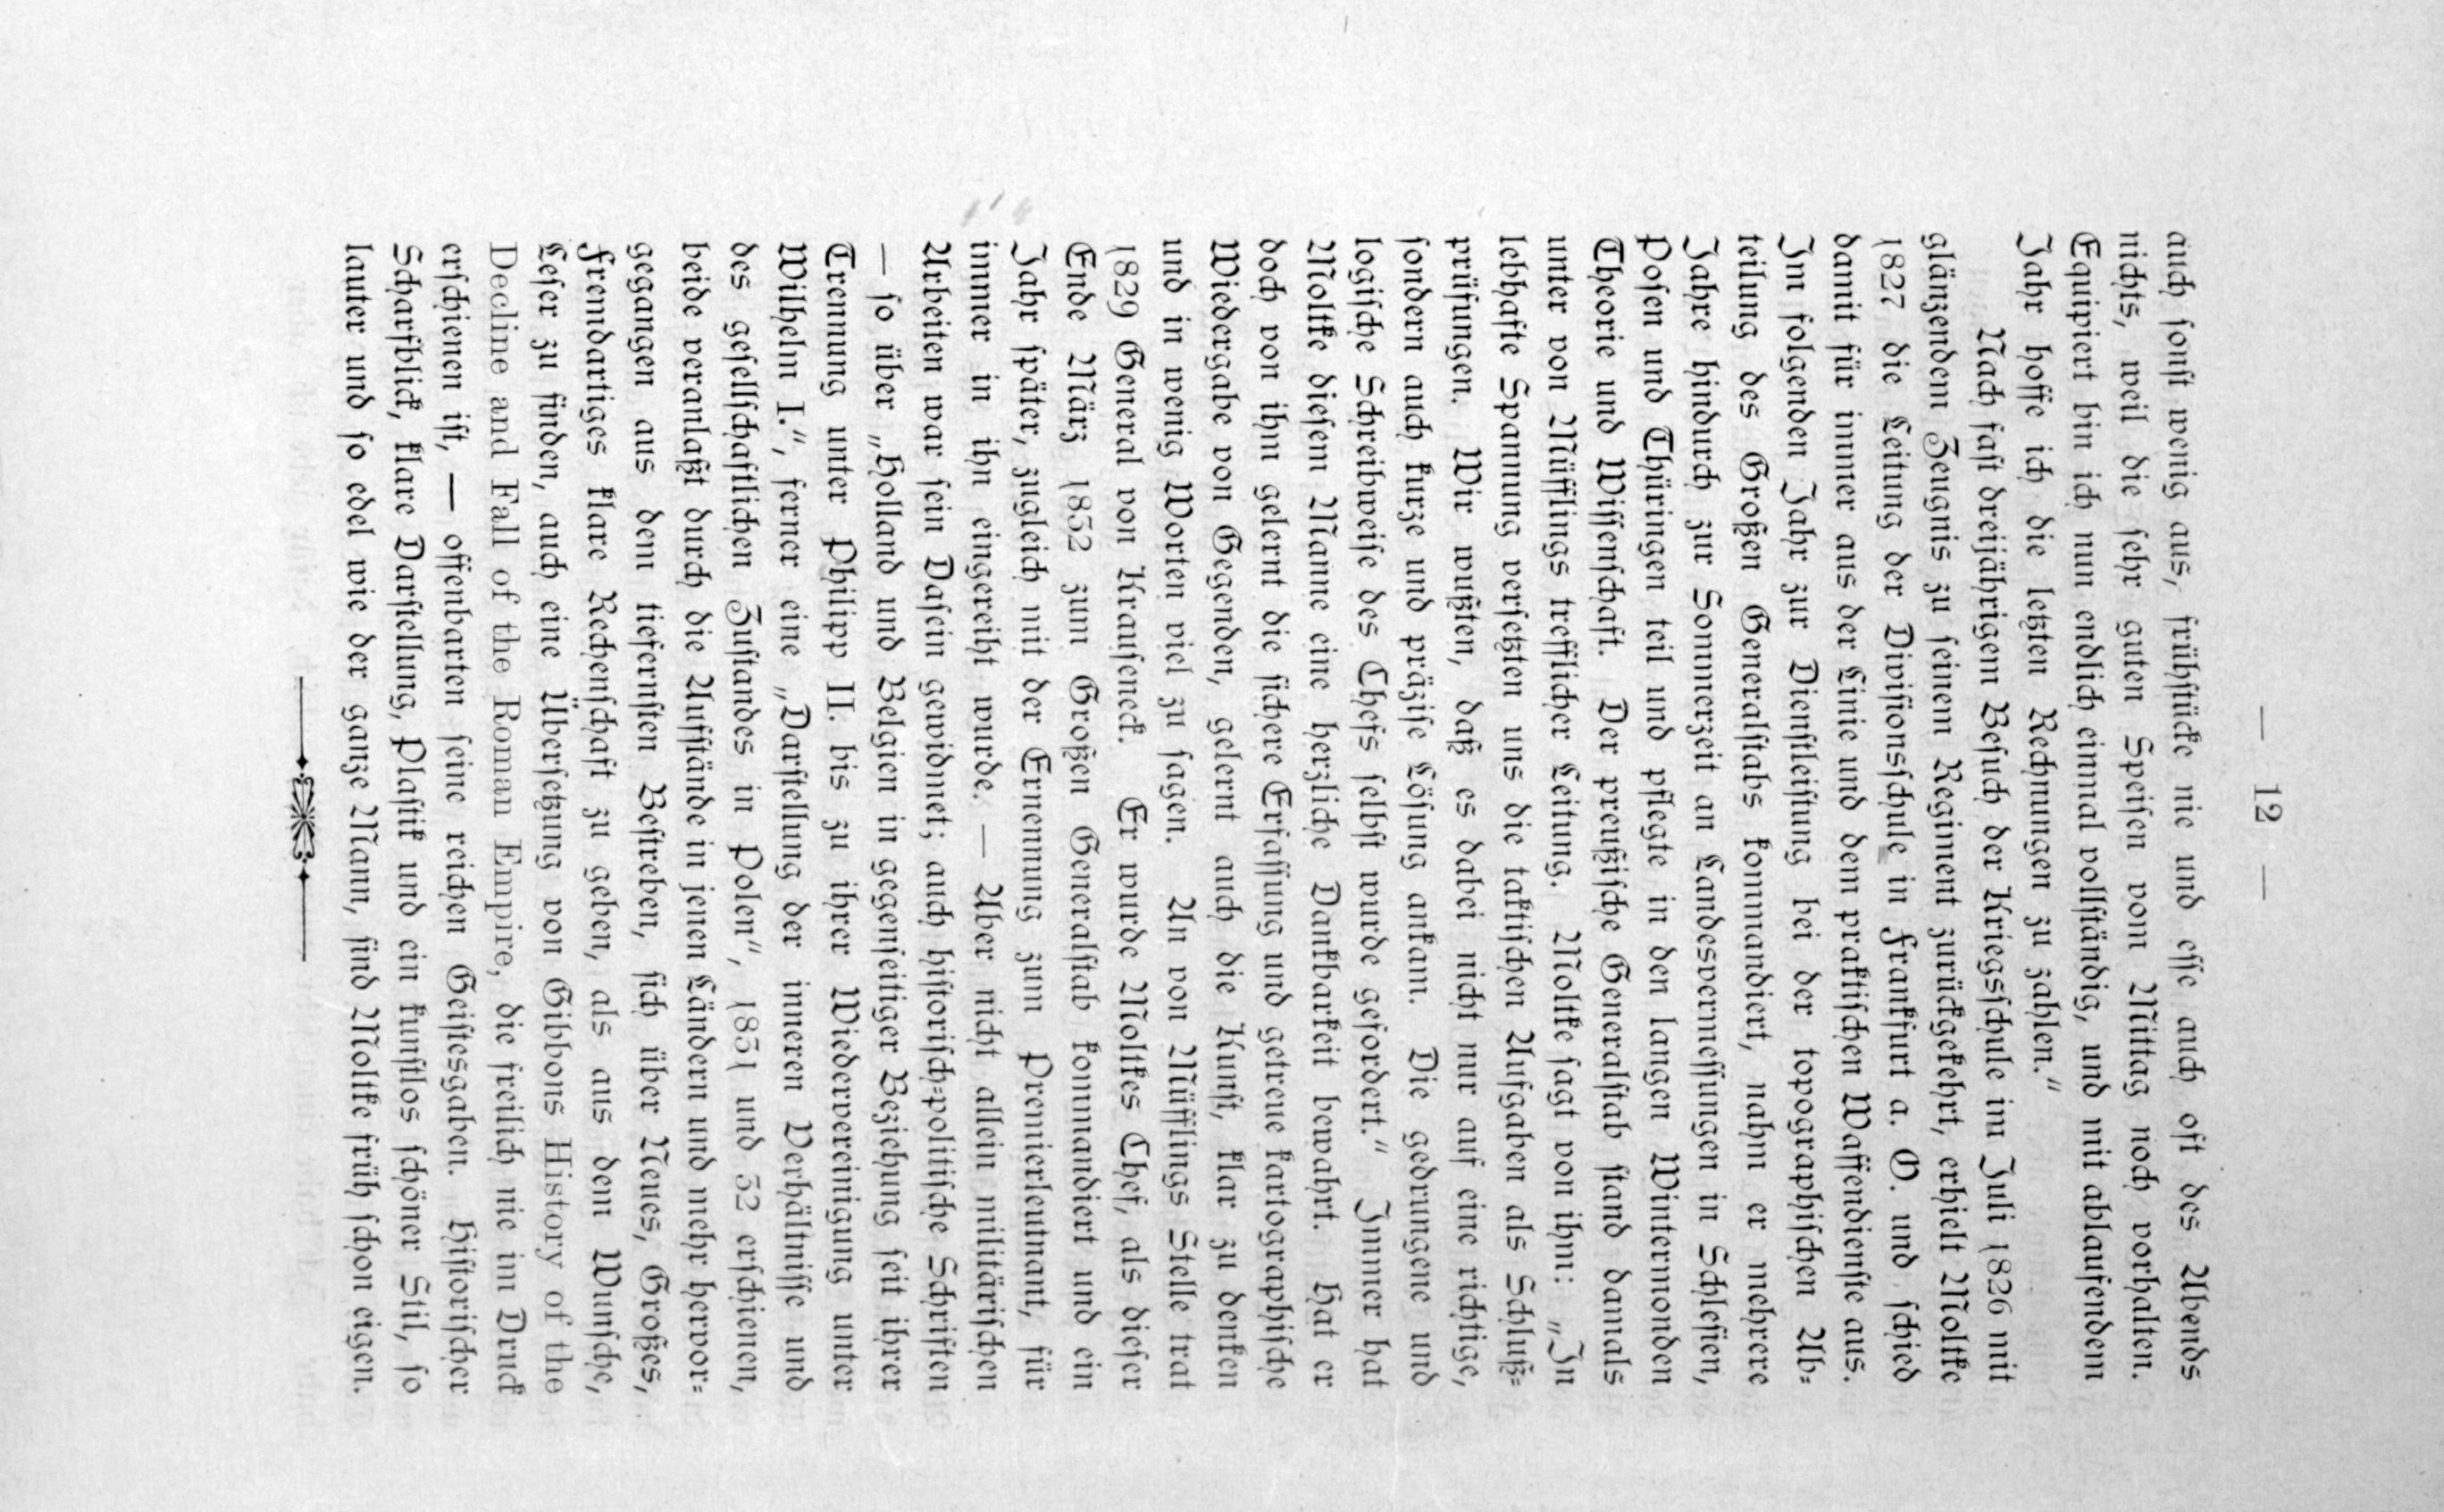 — 12 —
auch ſonſt wenig aus, frühſtücke nie und eſſe auch oft des Abends
nichts, weil die ſehr guten Speiſen vom Mittag noch vorhalten.
Equipiert bin ich nun endlich einmal vollſtändig, und mit ablaufendem
Jahr hoffe ich die letzten Rechnungen zu zahlen.“
Nach faſt dreijährigem Beſuch der Kriegsſchule im Juli 1826 mit
glänzendem Zeugnis zu ſeinem Regiment zurückgekehrt, erhielt Moltke
1827 die Leitung der Diviſionsſchule in Frankfurt a. O. und ſchied
damit für immer aus der Linie und dem praktiſchen Waffendienſte aus.
Im folgenden Jahr zur Dienſtleiſtung bei der topographiſchen Ab⸗
teilung des Großen Generalſtabs kommandiert, nahm er mehrere
Jahre hindurch zur Sommerzeit an Landesvermeſſungen in Schleſien,
Poſen und Thüringen teil und pflegte in den langen Wintermonden
Theorie und Wiſſenſchaft. Der preußiſche Generalſtab ſtand damals
unter von Müfflings trefflicher Leitung. Moltke ſagt von ihm: „In
lebhafte Spannung verſetzten uns die taktiſchen Aufgaben als Schluß⸗
prüfungen. Wir wußten, daß es dabei nicht nur auf eine richtige,
ſondern auch kurze und präziſe Löſung ankam. Die gedrungene und
logiſche Schreibweiſe des Chefs ſelbſt wurde gefordert.“ Immer hat
Moltke dieſem Manne eine herzliche Dankbarkeit bewahrt. Hat er
doch von ihm gelernt die ſichere Erfaſſung und getreue kartographiſche
Wiedergabe von Gegenden, gelernt auch die Kunſt, klar zu denken
und in wenig Worten viel zu ſagen. An von Müfflings Stelle trat
1829 General von Krauſeneck. Er wurde Moltkes Chef, als dieſer
Ende März 1832 zum Großen Generalſtab kommandiert und ein
Jahr ſpäter, zugleich mit der Ernennung zum Premierleutnant, für
immer in ihn eingereiht wurde. — Aber nicht allein militäriſchen
Arbeiten war ſein Daſein gewidmet; auch hiſtoriſch⸗politiſche Schriften
— ſo über „Holland und Belgien in gegenſeitiger Beziehung ſeit ihrer
Trennung unter Philipp II. bis zu ihrer Wiedervereinigung unter
Wilhelm I.“, ferner eine „Darſtellung der inneren Verhältniſſe und
des geſellſchaftlichen Zuſtandes in Polen“, 1831 und 32 erſchienen,
beide veranlaßt durch die Aufſtände in jenen Ländern und mehr hervor⸗
gegangen aus dem tiefernſten Beſtreben, ſich über Neues, Großes,
Fremdartiges klare Rechenſchaft zu geben, als aus dem Wunſche,
Leſer zu finden, auch eine Überſetzung von Gibbons History of the
Decline and Fall of the Roman Empire, die freilich nie im Druck
erſchienen iſt, — offenbarten ſeine reichen Geiſtesgaben. Hiſtoriſcher
Scharfblick, klare Darſtellung, Plaſtik und ein kunſtlos ſchöner Stil, ſo
lauter und ſo edel wie der ganze Mann, ſind Moltke früh ſchon eigen.